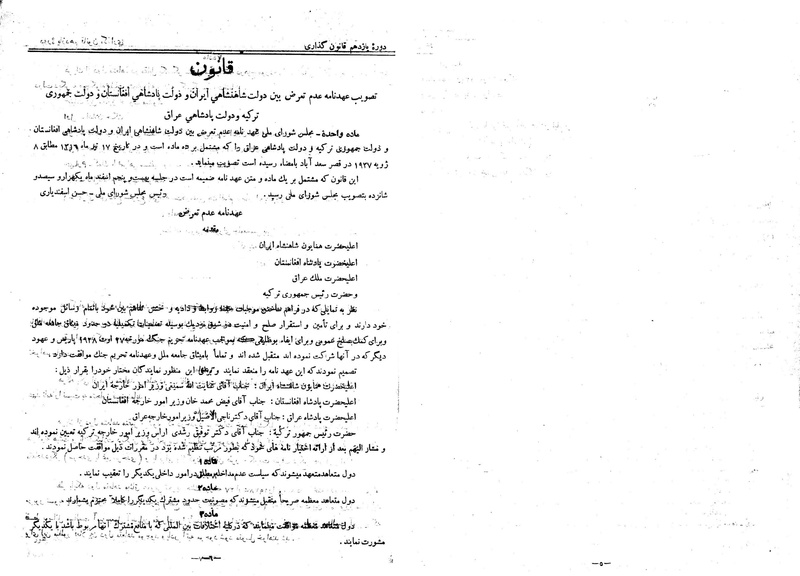 دورهٔ یازدهم قانون گذاری
قانون
تصویب عهدنامه عدم تعرض بین دولت شاهنشاهي ایران و دولت پادشاهي افغانستان و دولت جمهوری
ترکیه ودولت پادشاهي عراق
ماده واحده - مجلس شورای ملی عهد نامه عدم تعرض بین دولت شاهنشهی ایران و دولت پادشاهی افغانستان
و دولت جمهوری ترکیه و دولت پادشاهی عراق را که مشتمل بر ده ماده است و در تاریخ ۱۷ تیر ماه ۱۳۱۶ مطابق ۸
ژویه ۱۹۳۷ در قصر سعد آباد بامضاء رسیده است تصویب مینماید .
این قانون که مشتمل بر یك ماده و متن عهد نامه ضمیمه است در جلسه بیست و پنجم اسفند ماه یکهزارو سیصدو
شانزده بتصویب مجلس شورای ملی رسید .
رئیس مجلس شورای ملی - حسن اسفندیاری
عهدنامه عدم تعرض
مقدمه
اعلیحضرت همایون شاهنشاه ایران
اعلیحضرت پادشاه افغانستان
اعلیحضرت ملك عراق
وحضرت رئیس جمهوری ترکیه
نظر به تمایلی که در فراهم ساختن موجبات روابط و دادیه و حسن تفاهم بین خود باتمام وسائل موجوده
خود دارند و برای تأمین و استقرار صلح و امنیت در شرق نزدیك بوسیله تضمینات تکمیلیه در حدود میثاق جامعه ملل
وبرای کمك بصلح عمومی وبرای ایفاء بوظایفی که بموجب عهدنامه تحریم جنگ مورخه ۲۷ اوت ۱۹۲۸ پاریس و عهود
دیگر که در آنها شرکت نموده اند متقبل شده اند و تماماً بامیثاق جامعه ملل وعهدنامه تحریم جنك موافقت دارد
تصمیم نمودند که این عهد نامه را منعقد نمایند و برای این منظور نمایندگان مختار خودرا بقرار ذیل :
اعلیحضرت همایون شاهنشاه ایران : جناب آقای عنایت الله سمیعی وزیر امور خارجهٔ ایران
اعلیحضرت پادشاه افغانستان : جناب آقای فیض محمد خان وزیر امور خارجه افغانستان
اعلیحضرت پادشاه عراق : جناب آقای دکتر ناجی الاصیل وزیر امور خارجه عراق
حضرت رئیس جمهور ترکیه : جناب آقای دکتر توفیق رشدی اراس وزیر امور خارجه ترکیه تعیین نموده اند
و مشار الیهم بعد از ارائه اختیار نامه های خود که بطور مرتب تنظیم شده بود در مقررات ذیل موافقت حاصل نمودند .
ماده ۱
دول متعاهد متعهد میشوند که سیاست عدم مداخله مطلق در امور داخلی یکدیگر را تعقیب نمایند .
ماده ۲
دول متعاهد معظمه صریحاً متقبل میشوند که مصونیت حدود مشترك یکدیگر را کاملا محترم بشمارند
ماده ۳
دول متعاهد معظمه موافقت مینمایند که در کلیه اختلافات بین المللی که با منافع مشترك آنها مربوط باشد با یکدیگر
مشورت نمایند .
- ٥ -